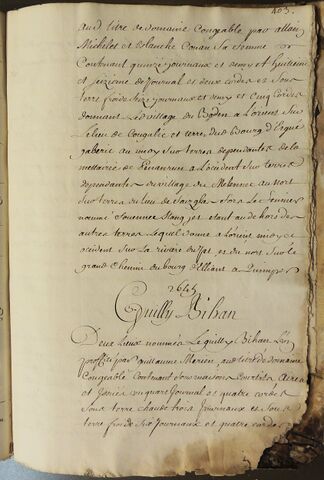 403.
aud titre de domaine Congeable par allain
Michelet et Blanche Conan sa femme
Contenant quinze journaux et demy et huitieme
et seizieme de journal et deux cordes et sous
terre froide seize journaux et demy et cinq cordes
donnant le village du Boden a Lorient sur
Le lieu de et terre du Bourg d'Ergué
gaberic au midy sur terres dependantes de la
mettairie de a Loccident sur terres
dependantes du village du Melennec au nort
sur terres du lieu de fors Le tennex
nommé Jouennec Stang jet etant au dehors des
autres terres Lequel donne a Lorient midy et
occident sur La riviere du Jet, et du nort sur le
grand Chemin du bourg d'Elliant a Quimper
1645
Quilly Bihan
Deux lieux nommés Le quilly Bihan Lun
proffité par Guillaume Merien, aud titre de domaine
Congeable Contenant sous maisons Courtils, Aires
et Janies un quart Journal et quatre cordes
sous terre chaude trois Journaux et sous
terre froide six Journaux et quatre cordes